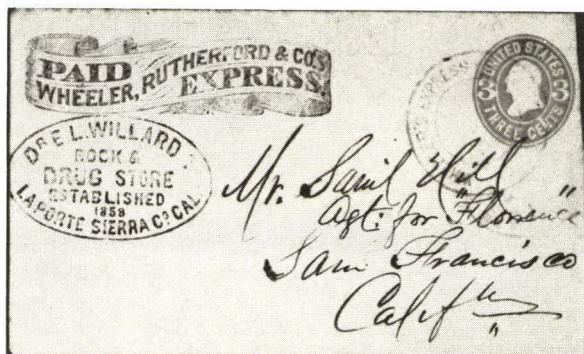 PAID
WHEELER, RUTHERFORD & CO'S
EXPRESS.
UNITED STATES
THREE CENTS
3 3
EXPRESS
DR E. L. WILLARD
DRUG STORE
ESTABLISHED
1858
LA PORTE SIERRA CO. CAL
Mr. Saml Hill
Agt. for "Florence"
San Francisco
Calif